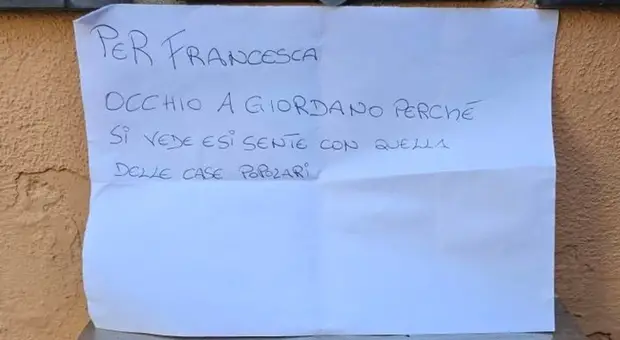 PER FRANCESCA
OCCHIO A GIORDANO PERCHÉ
SI VEDE E SI SENTE CON QUELLA
DELLE CASE POPOLARI